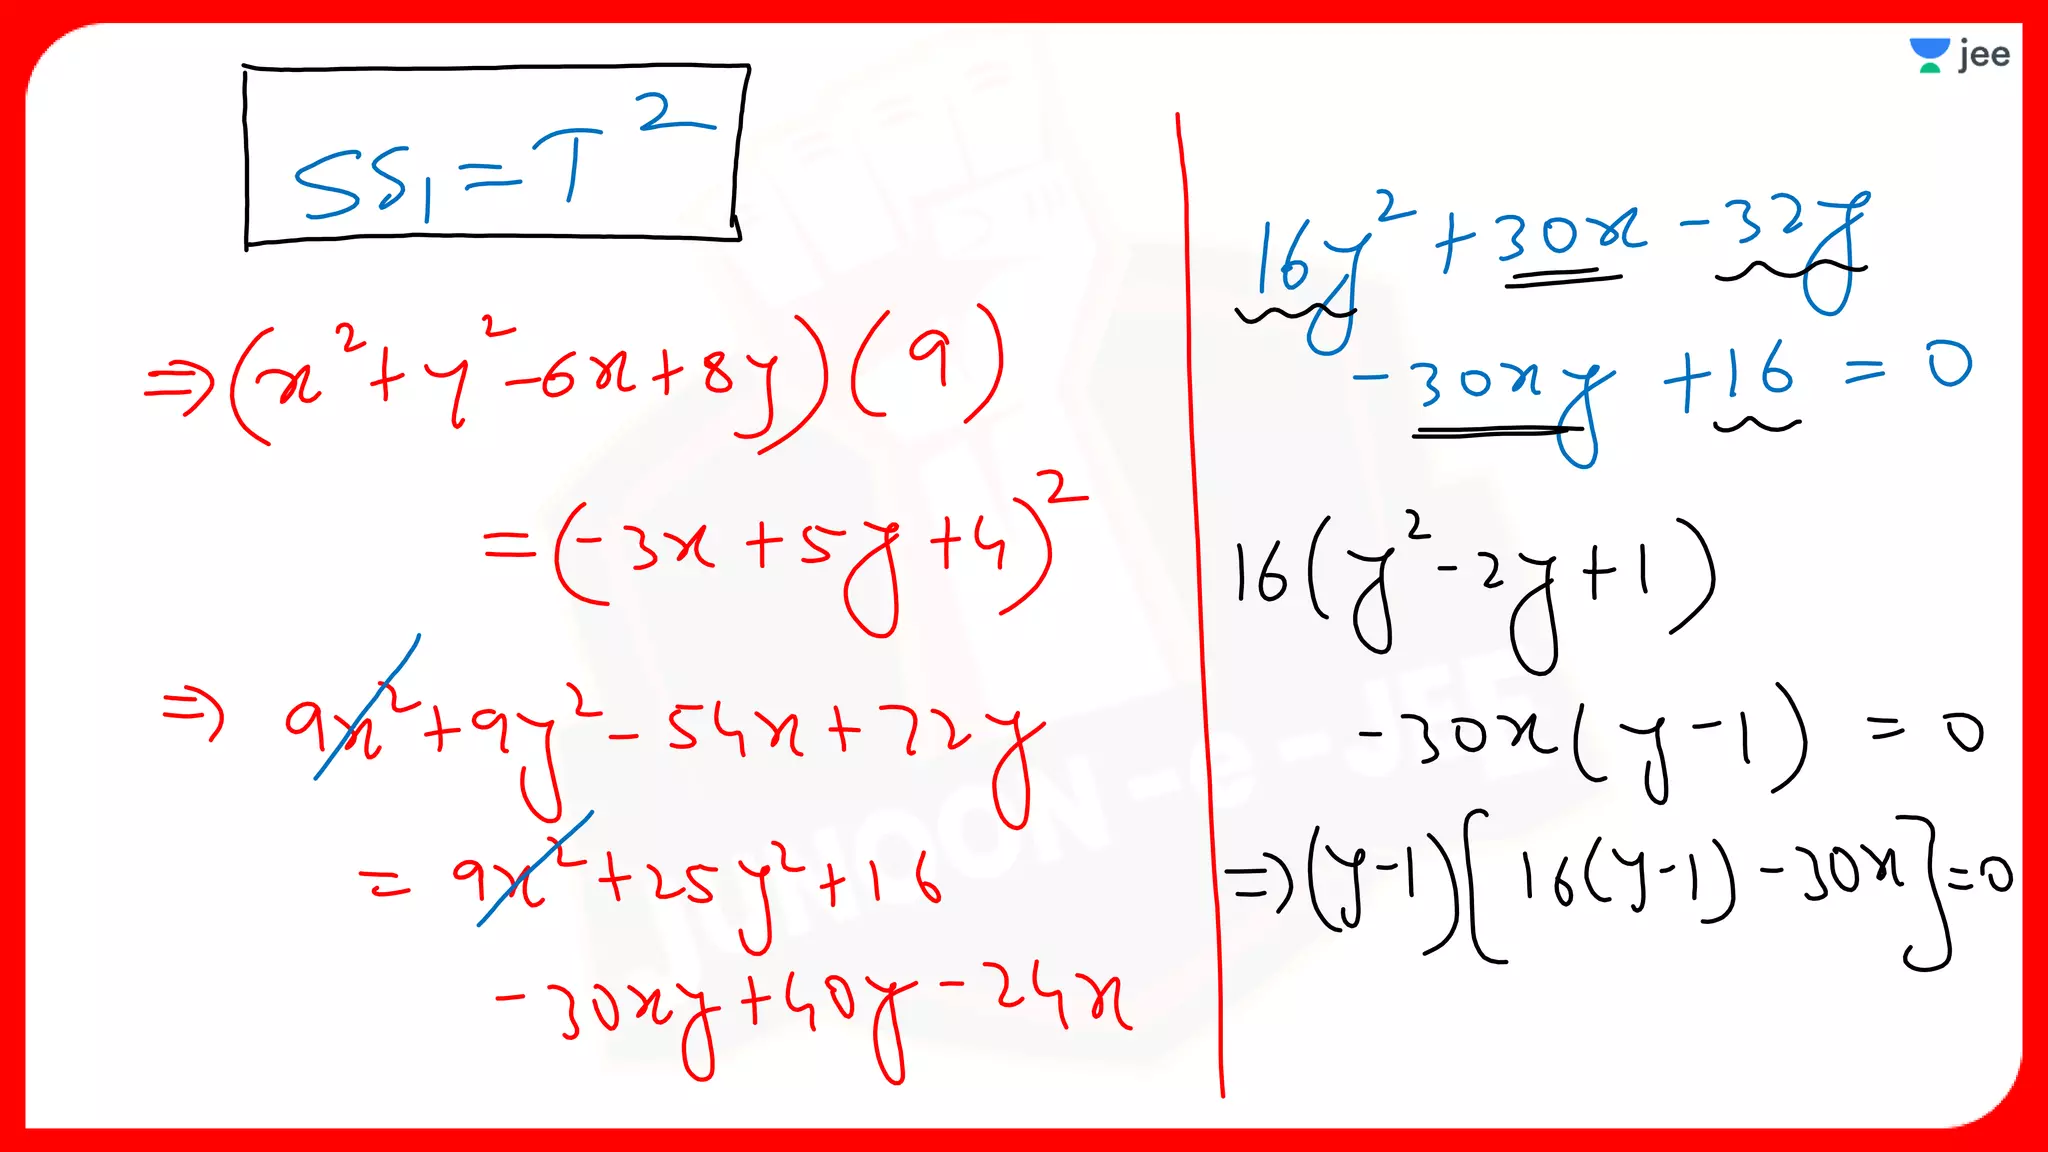 jee
SS₁ = T²
⇒ (x² + y² - 6x + 8y) (9)
= (-3x + 5y + 4)²
⇒ 9x² + 9y² - 54x + 72y
= 9x² + 25y² + 16
- 30xy + 40y - 24x
16y² + 30x - 32y
- 30xy + 16 = 0
16(y² - 2y + 1)
- 30x(y - 1) = 0
⇒ (y-1)[16(y-1) - 30x] = 0
JUNOON-e-JEE